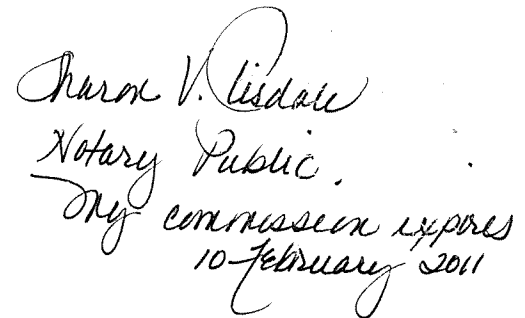 Sharon V. Tisdale
Notary Public.
My commission expires
10 February 2011